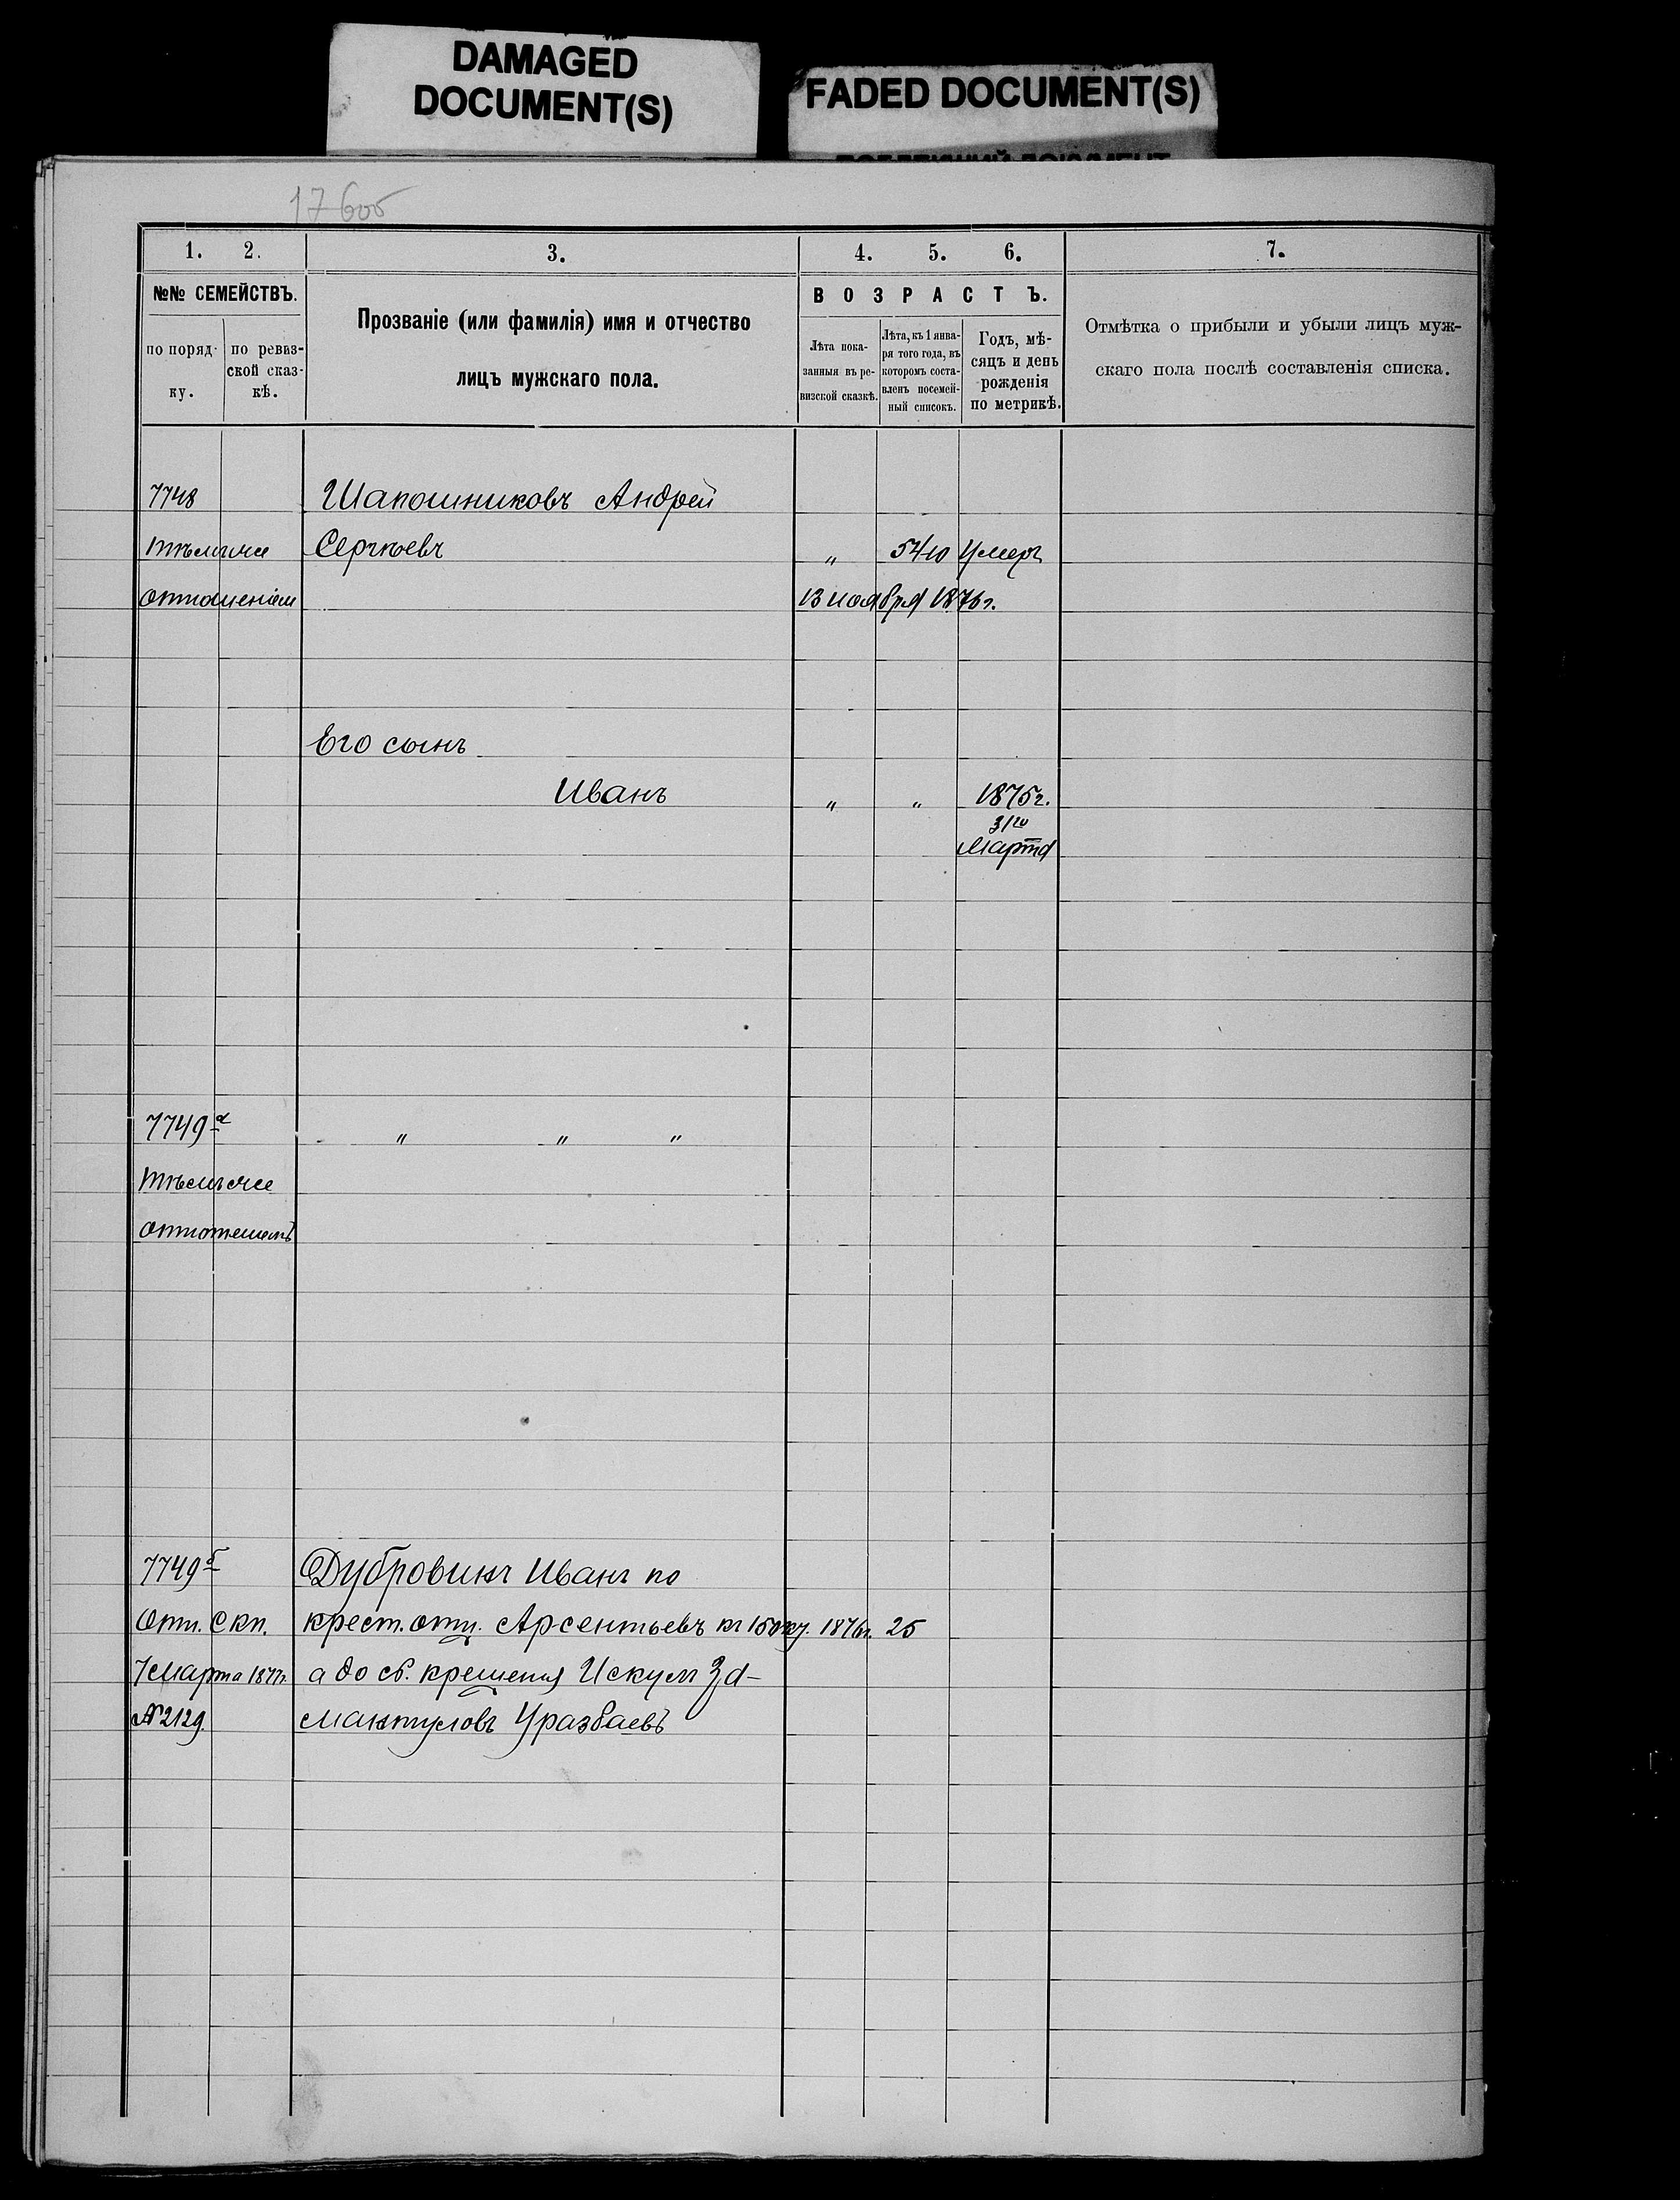 DAMAGED
DOCUMENT(S)
FADED DOCUMENT(S)
17 6об
1. 2. 3. 4. 5. 6. 7.
№№ СЕМЕЙСТВЪ.
по поряд-
ку.
по ревиз-
ской сказ-
кѣ.
Прозваніе (или фамилія) имя и отчество
лицъ мужскаго пола.
ВОЗРАСТЪ.
Лѣта пока-
занныя въ ре-
визской сказкѣ.
Лѣта, къ 1 янва-
ря того года, въ
которомъ соста-
вленъ посемей-
ный списокъ.
Годъ, мѣ-
сяцъ и день
рожденія
по метрикѣ.
Отмѣтка о прибыли и убыли лицъ муж-
скаго пола послѣ составленія списка.
7748 Шапошниковъ Андрей
тѣмъ же Сергѣевъ " 54 Умеръ
отношеніем 13 ноября 1876 г.
Его сынъ
Иванъ " " 1875 г.
31го
Марта
7749а " " "
тѣмъ же
отношеніемъ
7749б Дубровинъ Иванъ по
Отн. Скп. крест. отц. Арсентьевъ къ 1876г. 25
7 Марта 1877г. а до св. крещенія Искум За-
№2129. мантуловъ Уразбаевъ